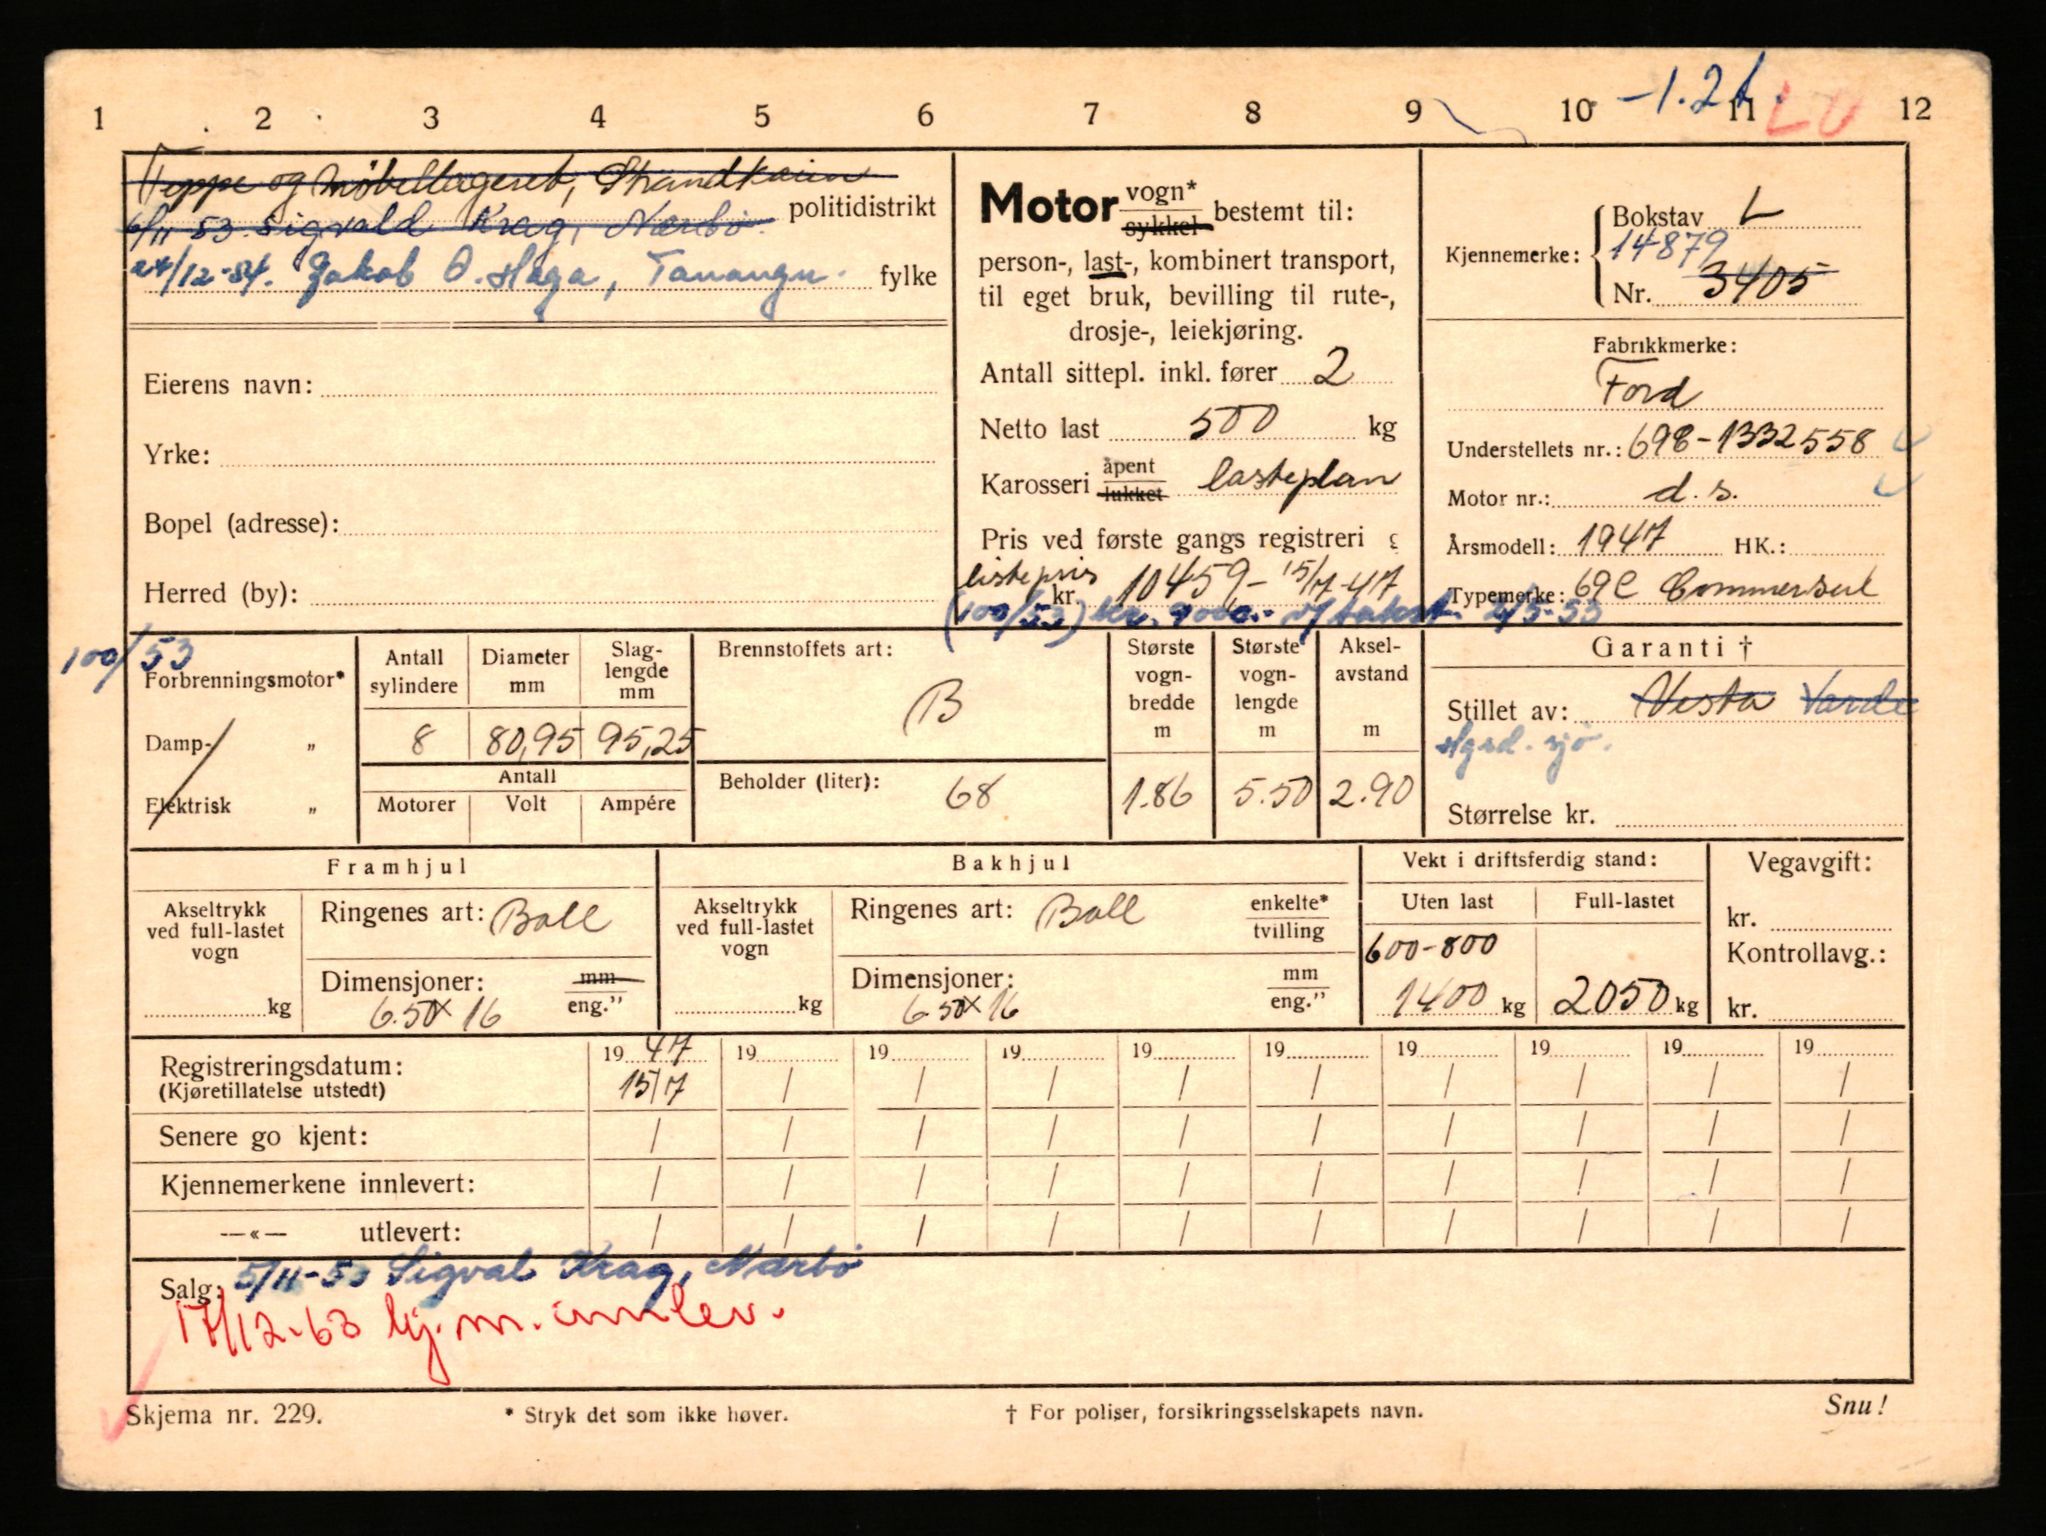 -1.2t. LU
1 2 3 4 5 6 7 8 9 10 11 12
Teppe og møbellageret, Strandkaien
politidistrikt
6/11 53 Sigvald Krag, Nærbø.
24/12-54. Jakob O. Haga, Tananger. fylke
Eierens navn:
Yrke:
Bopel (adresse):
Herred (by):
Motor vogn* sykkel bestemt til:
person-, last-, kombinert transport,
til eget bruk, bevilling til rute-,
drosje-, leiekjøring.
Antall sittepl. inkl. fører 2
Netto last 500 kg
Karosseri åpent lukket lasteplan
Pris ved første gangs registreri g
listepris kr. 10459,- 15/7-47
(100/53) kr. 9000.- v/takst 2/5-53
Kjennemerke: Bokstav L
14879
Nr. 3405
Fabrikkmerke:
Ford
Understellets nr.: 69C-1332558
Motor nr.: d.s.
Årsmodell: 1947 HK.:
Typemerke: 69C Commersiel
100/53
Forbrenningsmotor*
Damp- „
Elektrisk „
Antall sylindere
8
Diameter mm
80,95
Slag-lengde mm
95,25
Antall
Motorer Volt Ampére
Brennstoffets art:
B
Beholder (liter): 68
Største vogn-bredde m
1.86
Største vogn-lengde m
5.50
Aksel-avstand m
2.90
Garanti †
Stillet av: Vesta Varde
Hgsd. sjø.
Størrelse kr.
Framhjul
Akseltrykk ved full-lastet vogn
kg
Ringenes art: Ball
Dimensjoner: mm eng."
6.50x16
Bakhjul
Akseltrykk ved full-lastet vogn
kg
Ringenes art: Ball enkelte* tvilling
Dimensjoner: mm eng."
6 50x16
Vekt i driftsferdig stand:
Uten last Full-lastet
600-800
1400 kg 2050 kg
Vegavgift:
kr.
Kontrollavg.:
kr.
Registreringsdatum: 19 47 19 19 19 19 19 19 19 19 19
(Kjøretillatelse utstedt) 15/7 / / / / / / / / /
Senere go kjent: / / / / / / / / / /
Kjennemerkene innlevert: / / / / / / / / / /
—«— utlevert: / / / / / / / / / /
Salg: 5/11-53 Sigval Krag, Nærbø
17/12-63 kj.m. innlev.
Skjema nr. 229. * Stryk det som ikke høver. † For poliser, forsikringsselskapets navn. Snu!